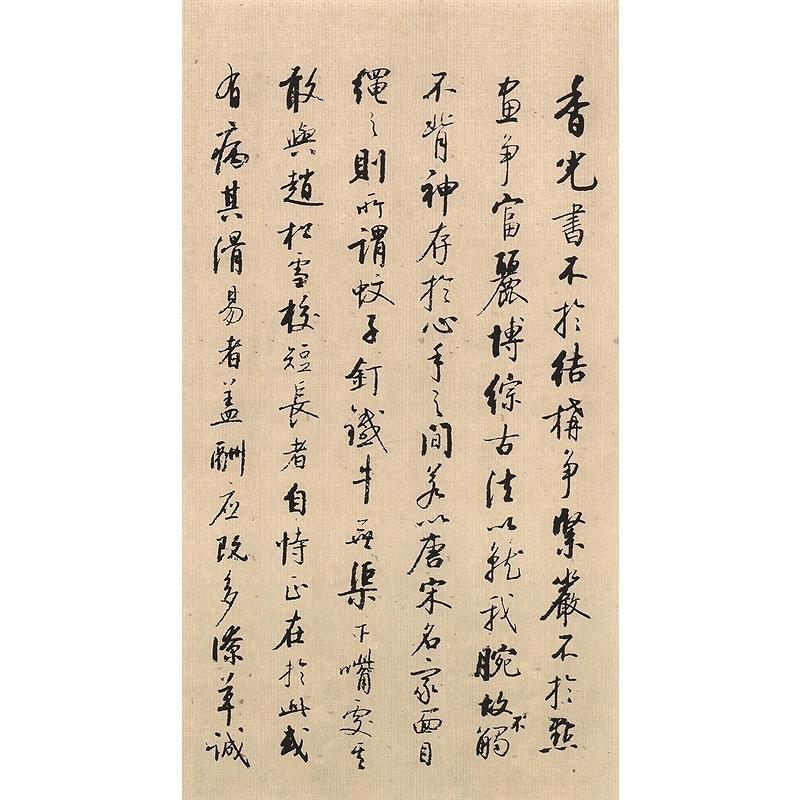 香光書不於結構爭緊嚴不於點
畫爭富麗博綜古法以就我腕故不觸
不背神存於心手之間若以唐宋名家面目
繩之則所謂蚊子釘鐵牛無渠下嘴處其
敢與趙松雪校短長者自恃正在於此或
有病其滑易者蓋酬應既多潦草誠